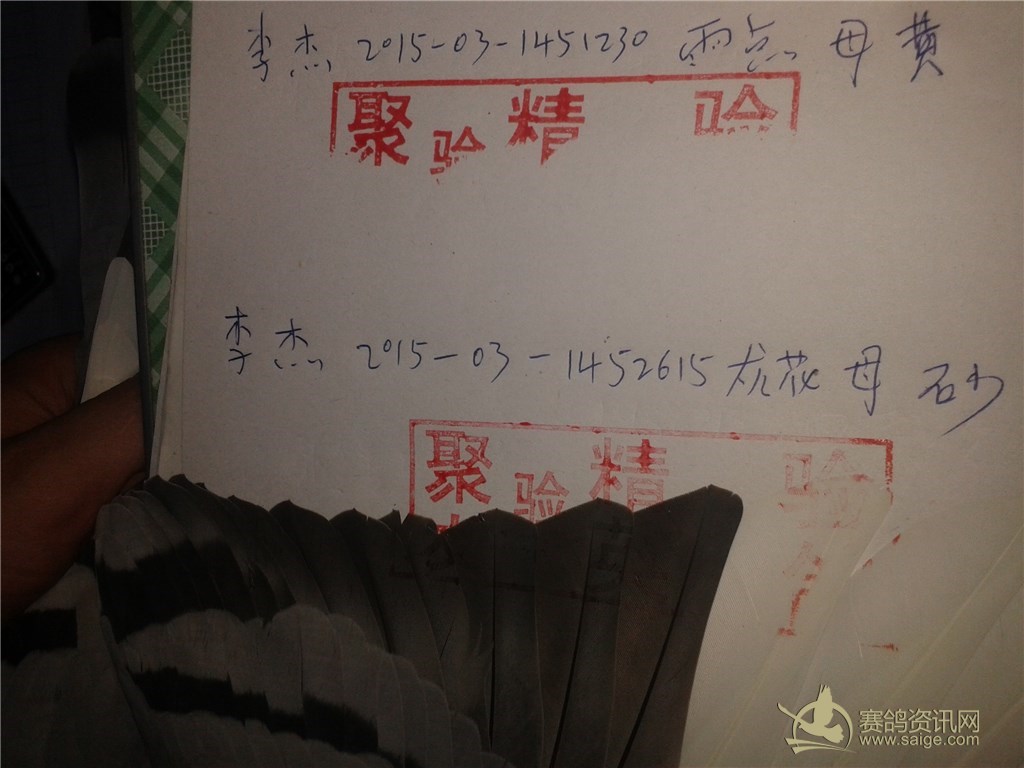 李杰 2015-03-1451230 雨点 母 黄
聚验精 验
李杰 2015-03-1452615 龙花 母 砂
聚验精 验
赛鸽资讯网
www.saige.com